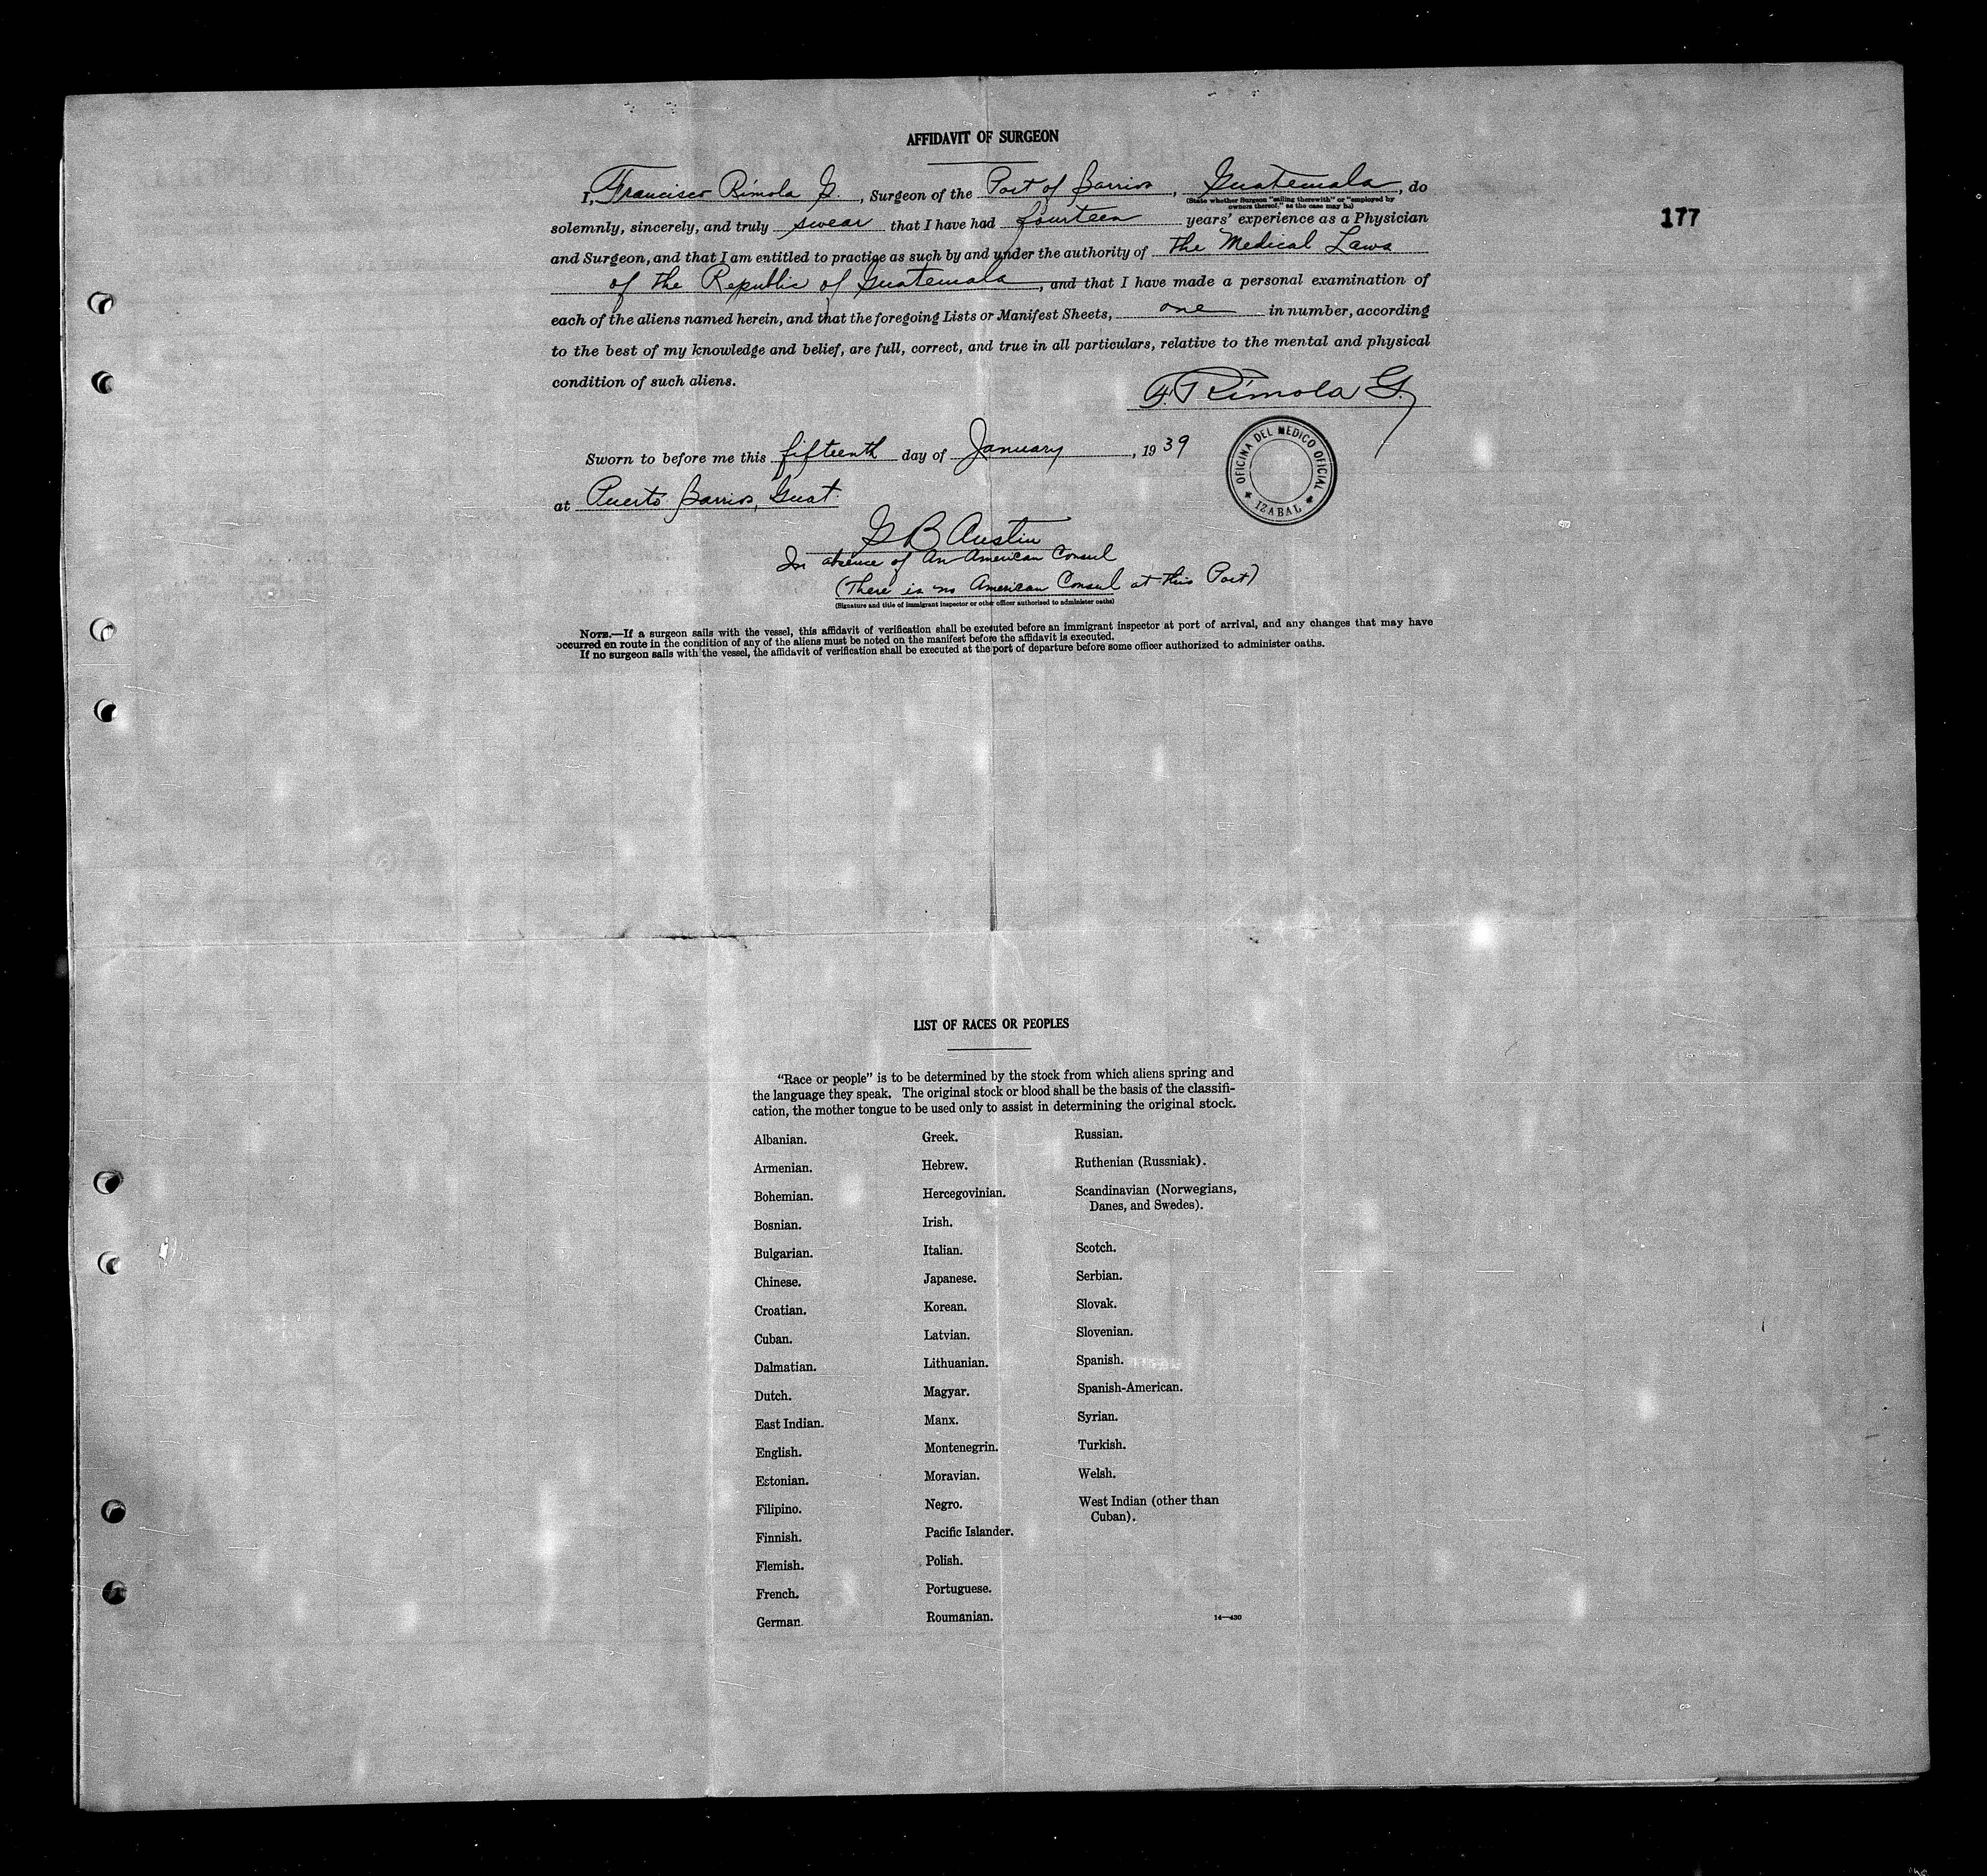 AFFIDAVIT OF SURGEON
177
I, Francisco Rímola G., Surgeon of the Port of Barrios, Guatemala, do
(State whether Surgeon "sailing therewith" or "employed by
owners thereof," as the case may be)
solemnly, sincerely, and truly swear that I have had fourteen years' experience as a Physician
and Surgeon, and that I am entitled to practice as such by and under the authority of the Medical Laws
of the Republic of Guatemala, and that I have made a personal examination of
each of the aliens named herein, and that the foregoing Lists or Manifest Sheets, one in number, according
to the best of my knowledge and belief, are full, correct, and true in all particulars, relative to the mental and physical
condition of such aliens.
F. Rímola G.
OFICINA DEL MEDICO OFICIAL
IZABAL
Sworn to before me this fifteenth day of January, 1939
at Puerto Barrios, Guat.
G B Austin
In absence of An American Consul
(There is no American Consul at this Port)
(Signature and title of immigrant inspector or other officer authorized to administer oaths)
NOTE.—If a surgeon sails with the vessel, this affidavit of verification shall be executed before an immigrant inspector at port of arrival, and any changes that may have
occurred en route in the condition of any of the aliens must be noted on the manifest before the affidavit is executed.
If no surgeon sails with the vessel, the affidavit of verification shall be executed at the port of departure before some officer authorized to administer oaths.
LIST OF RACES OR PEOPLES
"Race or people" is to be determined by the stock from which aliens spring and
the language they speak. The original stock or blood shall be the basis of the classifi-
cation, the mother tongue to be used only to assist in determining the original stock.
Albanian.
Armenian.
Bohemian.
Bosnian.
Bulgarian.
Chinese.
Croatian.
Cuban.
Dalmatian.
Dutch.
East Indian.
English.
Estonian.
Filipino.
Finnish.
Flemish.
French.
German.
Greek.
Hebrew.
Hercegovinian.
Irish.
Italian.
Japanese.
Korean.
Latvian.
Lithuanian.
Magyar.
Manx.
Montenegrin.
Moravian.
Negro.
Pacific Islander.
Polish.
Portuguese.
Roumanian.
Russian.
Ruthenian (Russniak).
Scandinavian (Norwegians,
Danes, and Swedes).
Scotch.
Serbian.
Slovak.
Slovenian.
Spanish.
Spanish-American.
Syrian.
Turkish.
Welsh.
West Indian (other than
Cuban).
14—430